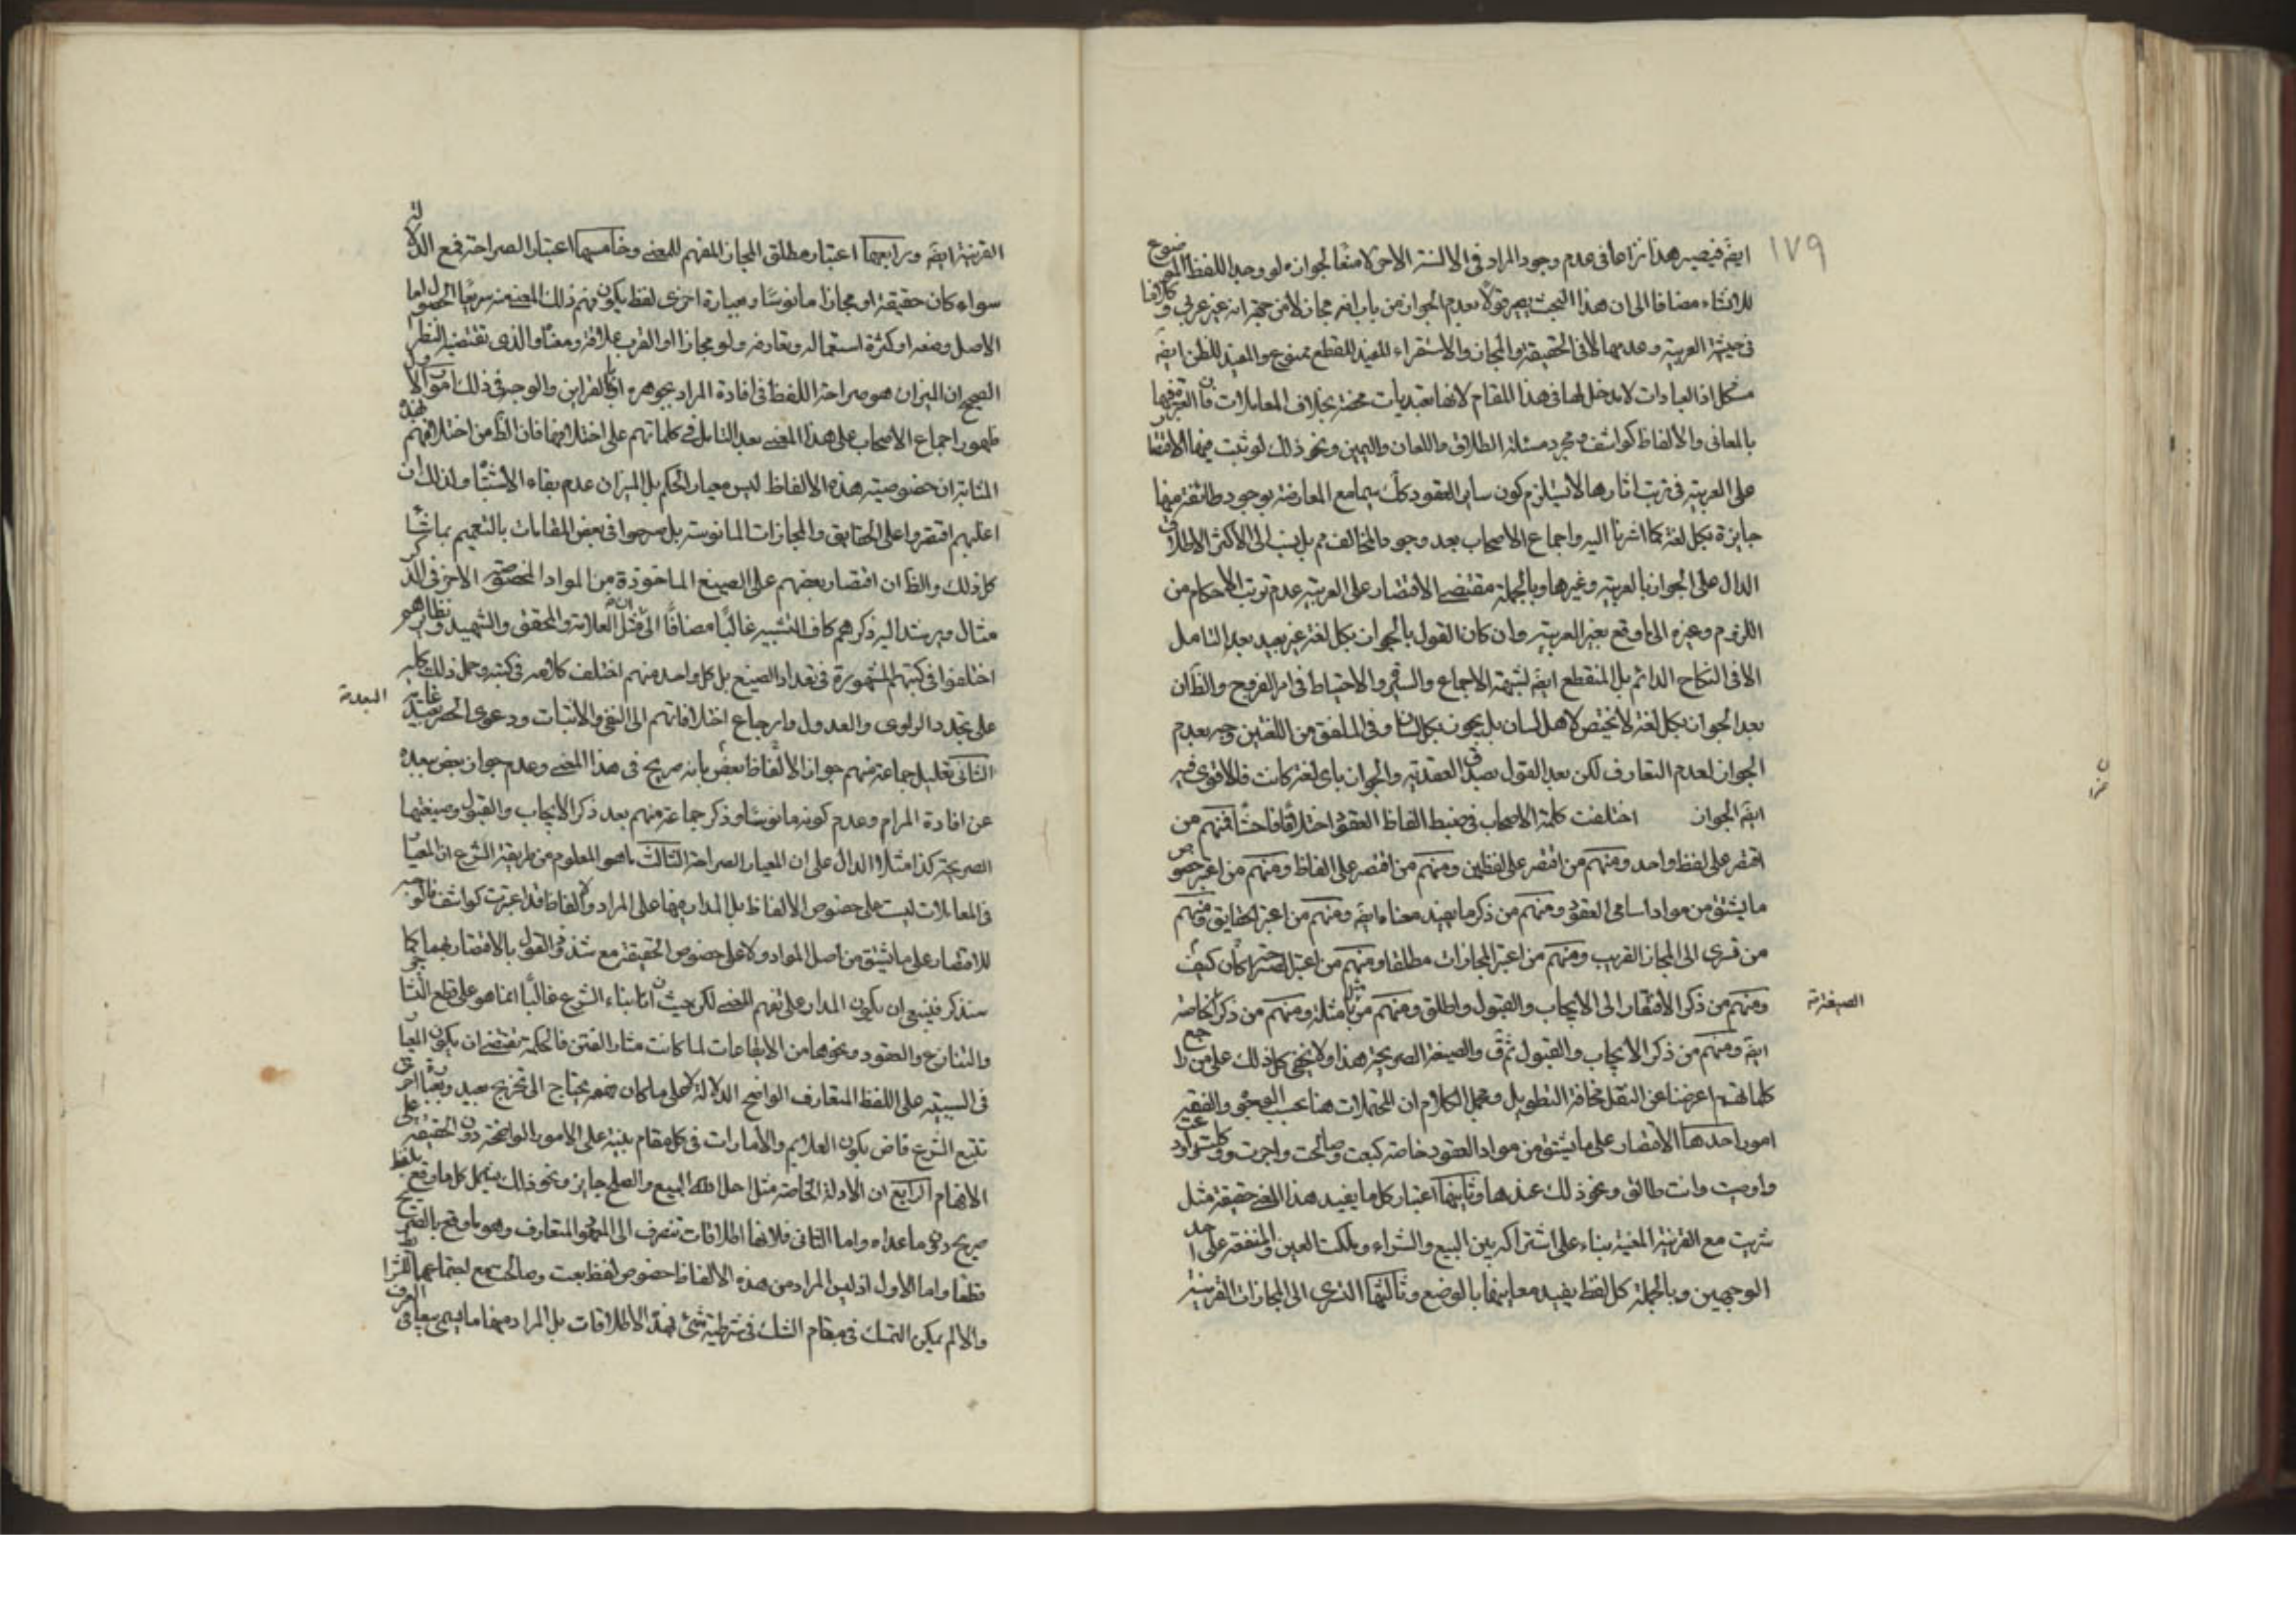 ١٧٩
ايضا فيصير هذا نزاعا في عدم وجود المراد في الالسنة الاخر لا منعا لجوازه لو وجد اللفظ الموضوع
للانشاء مضافا الى ان هذا البحث يصير قولا بعدم الجواز من باب انه مجاز لا من جهة انه غير عربي و كلامنا
في حيثية العربية وعدمها لا في الحقيقة والمجاز والاستقراء المفيد للقطع ممنوع والمفيد للظن ايضا
مشكل اذ العبادات لا مدخل لها في هذا المقام لانها تعبديات محضة بخلاف المعاملات فان العبرة فيها
بالمعاني والالفاظ كواشف و مجرد مسئلة الطلاق واللعان واليمين ونحو ذلك لو ثبت فيها الاقتصار
على العربية في ترتب اثارها لا يستلزم كون ساير العقود كك سيما مع المعارضة بوجود طائفة منها
جايزة بكل لغة كما اشرنا اليه واجماع الاصحاب بعد وجود المخالف مم بل نسب الى الاكثر الاطلاق
الدال على الجواز بالعربية وغيرها وبالجملة مقتضى الاقتصار على العربية عدم ترتب الاحكام من
اللزوم وغيره الى ما وقع بغير العربية وان كان القول بالجواز بكل لغة غير بعيد بعد التامل
الا في النكاح الدائم بل المنقطع ايضا لشبهة الاجماع والسيرة والاحتياط في امر الفروج والظ ان
بعد الجواز بكل لغة لا يختص لاهل لسان بل يجوز بكل لسان وفي الملفق من اللغتين وجه بعدم
الجواز لعدم التعارف لكن بعد القول بصدق العقدية والجواز باي لغة كانت فالاقوى فيه
ايضا الجواز اختلفت كلمة الاصحاب في ضبط الفاظ العقود اختلافا فاحشا فمنهم من
اقتصر على لفظ واحد ومنهم من اقتصر على لفظين ومنهم من اقتصر على الفاظ ومنهم من اعتبر خصوص
ما يشتق من مواد اسامي العقود ومنهم من ذكر ما يفيد معناه ايضا ومنهم من اعتبر الحقايق ومنهم
من تسرى الى المجاز القريب ومنهم من اعتبر المجازات مطلقا ومنهم من اعتبر الصراحة كان كيف
ومنهم من ذكر الافتقار الى الايجاب والقبول واطلق ومنهم من بامثلة ومنهم من ذكر الخاصة
ايضا ومنهم من ذكر الايجاب والقبول ثم ق والصيغة الصريحة هذا ولا يخفى كل ذلك على من راجع
كلماتهم اعرضنا عن النقل مخافة التطويل ومجمل الكلام ان المحتملات هنا بحسب الوجوه والفقير
امور احدها الاقتصار على ما يشتق من مواد العقود خاصة كبعت وصالحت واجرت ووكلت
واوصيت وانت طالق ونحو ذلك عندها وثانيها اعتبار كل ما يفيد هذا المعنى حقيقة مثل
شريت مع القرينة المعينة بناء على اشتراكه بين البيع والشراء وملكت العين والمنفعة على احد
الوجهين وبالجملة كل لفظ يفيد معاينها بالوضع وثالثها التسرى الى المجازات القريبة
القريبة ايضا ورابعها اعتبار مطلق المجاز المفهم للمعنى وخامسها اعتبار الصراحة فمع الدلالة
سواء كان حقيقة او مجازا مانوسا وبعبارة اخرى لفظ يكون فهم ذلك المعنى منه سريع الحصول اما
الاصل وضعه او كثرة استعماله وتعارفه ولو مجازا او القرب علاقة ومعنا والذي تقتضيه النظر
الصحيح ان الميزان هو صراحة اللفظ في افادة المراد بجوهره او بالقراين والوجه في ذلك امور الاول
ظهور اجماع الاصحاب على هذا المعنى بعد التامل في كلماتهم على اختلافها فان الظ من اختلافهم
المثابة ان خصوصية هذه الالفاظ ليس معيار الحكم بل الميزان عدم بقاء الاشتباه ولذلك ان
اغلبهم اقتصروا على الحقايق والمجازات المانوسة بل صرحوا في بعض المقامات بالتعميم بما شا
كل ذلك والظ ان اقتصار بعضهم على الصيغ الماخوذة من المواد المخصوصة الاخر في الذكر
مثال ويرشد اليه ذكرهم كاف التشبيه غالبا مضافا الى ان مثل العلامة والمحقق والشهيد ونظايرهم
اختلفوا في كتبهم المشهورة في تعداد الصيغ بل كل واحد منهم اختلف كلامه في كتبه وحمل ذلك كله
على تجدد الراى والعدول وارجاع اختلافاتهم الى النفي والاثبات ودعوى الحصر بعيد غاية
البعد
الثاني تعليل جماعة منهم جواز الالفاظ بعض بانه صريح في هذا المعنى وعدم جواز بعض ببعده
عن افادة المرام وعدم كونه مانوسا وذكر جماعة منهم بعد ذكر الايجاب والقبول وصيغتهما
الصريحة كذا مثلا الدال على ان المعيار الصراحة الثالث ما هو المعلوم من طريقة الشرع ان المعيار
في المعاملات ليست على خصوص الالفاظ بل المدار فيها على المراد والالفاظ قد اعتبرت كواشف فلا وجه
للاقتصار على ما يشتق من اصل المواد ولا على خصوص الحقيقة مع شذوذ القول بالاقتصار بهما كما
سنذكر فينبغي ان يكون المدار على تفهيم المعنى لكن حيث ان بناء الشرع غالبا انما هو على قطع التشاجر
والتنازع والعقود ونحوها من الايقاعات لما كانت مثار الفتن فالحكمة تقتضي ان يكون المعيار
في السببية على اللفظ المتعارف الواضح الدلالة لا على ما كان فهمه يحتاج الى تخريج بعيد وبعبارة اخرى
تتبع الشرع قاض بكون العلايم والامارات في كل مقام مبنية على الامور الواضحة دون الخفية على
الافهام الرابع ان الادلة الخاصة مثل احل الله البيع والصلح جايز ونحو ذلك يشمل كل ما وقع بلفظ
صريح دون ما عداه واما الثاني فلانها اطلاقات تنصرف الى المعهود المتعارف وهو ما وقع بالصريح
قطعا واما الاول اذ ليس المراد من هذه الالفاظ خصوص لفظ بعت وصالحت مع اجتماعهما للشرائط
والا لم يمكن التمسك في مقام الشك في شرطية شئ بهذه الاطلاقات بل المراد منها ما يسمى بيعا في العرف